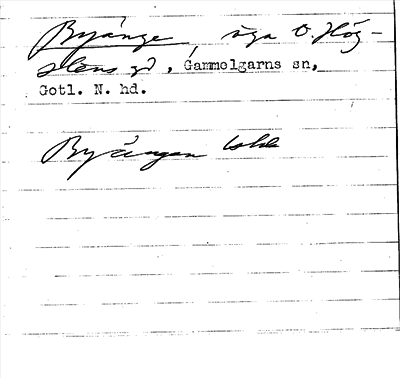 Byänge, äga Ö. Hög-
stens gd, Gammelgarns sn,
Gotl. N. hd.
Byängen